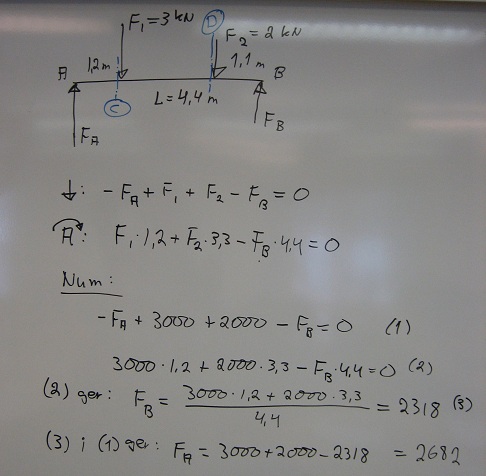 F₁=3 kN
D
F₂=2 kN
A
1,2 m
1,1 m
B
C
L=4,4 m
F_A
F_B
↓: -F_A + F₁ + F₂ - F_B = 0
A: F₁·1,2 + F₂·3,3 - F_B·4,4 = 0
Num:
-F_A + 3000 + 2000 - F_B = 0 (1)
3000·1,2 + 2000·3,3 - F_B·4,4 = 0 (2)
(2) ger: F_B = (3000·1,2 + 2000·3,3)/4,4 = 2318 (3)
(3) i (1) ger: F_A = 3000+2000-2318 = 2682